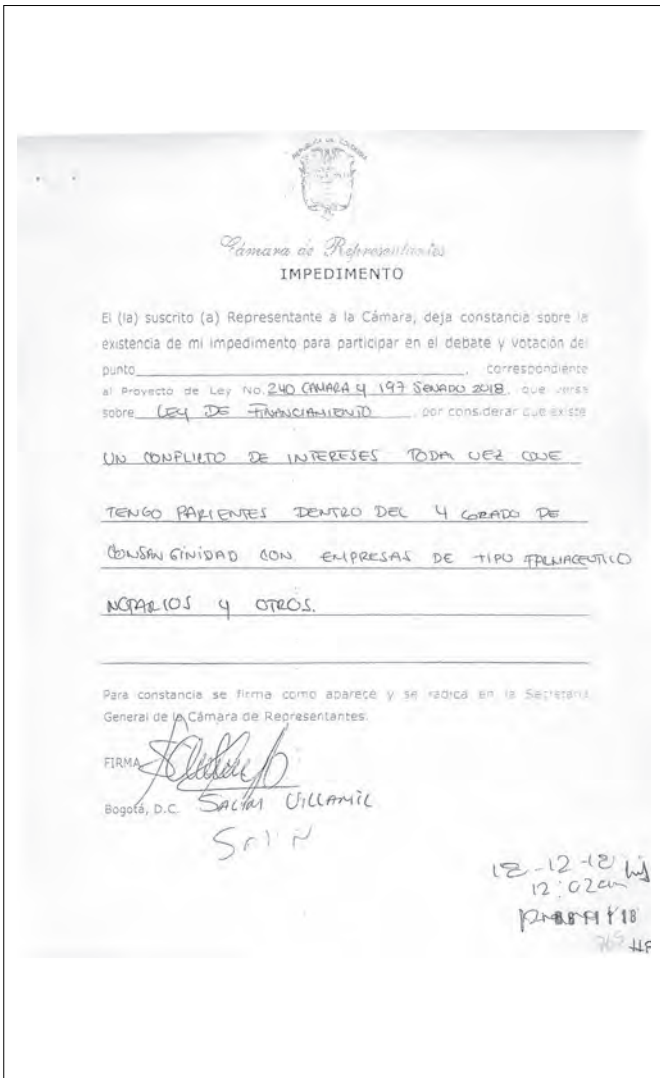 REPUBLICA DE COLOMBIA
Cámara de Representantes
IMPEDIMENTO
El (la) suscrito (a) Representante a la Cámara, deja constancia sobre la
existencia de mi impedimento para participar en el debate y votación del
punto , correspondiente
al Proyecto de Ley No. 240 CAMARA Y 197 SENADO 2018, que versa
sobre LEY DE FINANCIAMIENTO , por considerar que existe
UN CONFLICTO DE INTERESES TODA VEZ QUE
TENGO PARIENTES DENTRO DEL 4 GRADO DE
CONSANGINIDAD CON EMPRESAS DE TIPO FARMACEUTICO
NOTARIOS Y OTROS.
Para constancia se firma como aparece y se radica en la Secretaria
General de la Cámara de Representantes.
FIRMA
Bogotá, D.C. VILLAMIL
12:02am